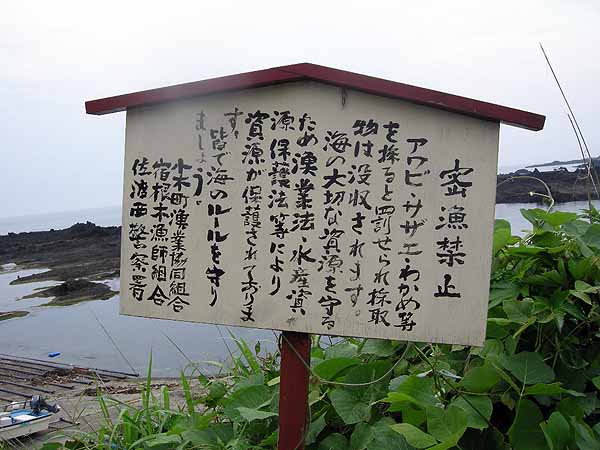 密漁禁止
アワビ・サザエ・わかめ等
を採ると罰せられ採取
物は没収されます。
海の大切な資源を守る
ため漁業法・水産資
源保護法等により
資源が保護されておりま
す。皆で海のルールを守り
ましょう。
小木町漁業協同組合
宿根木漁師組合
佐渡西警察署